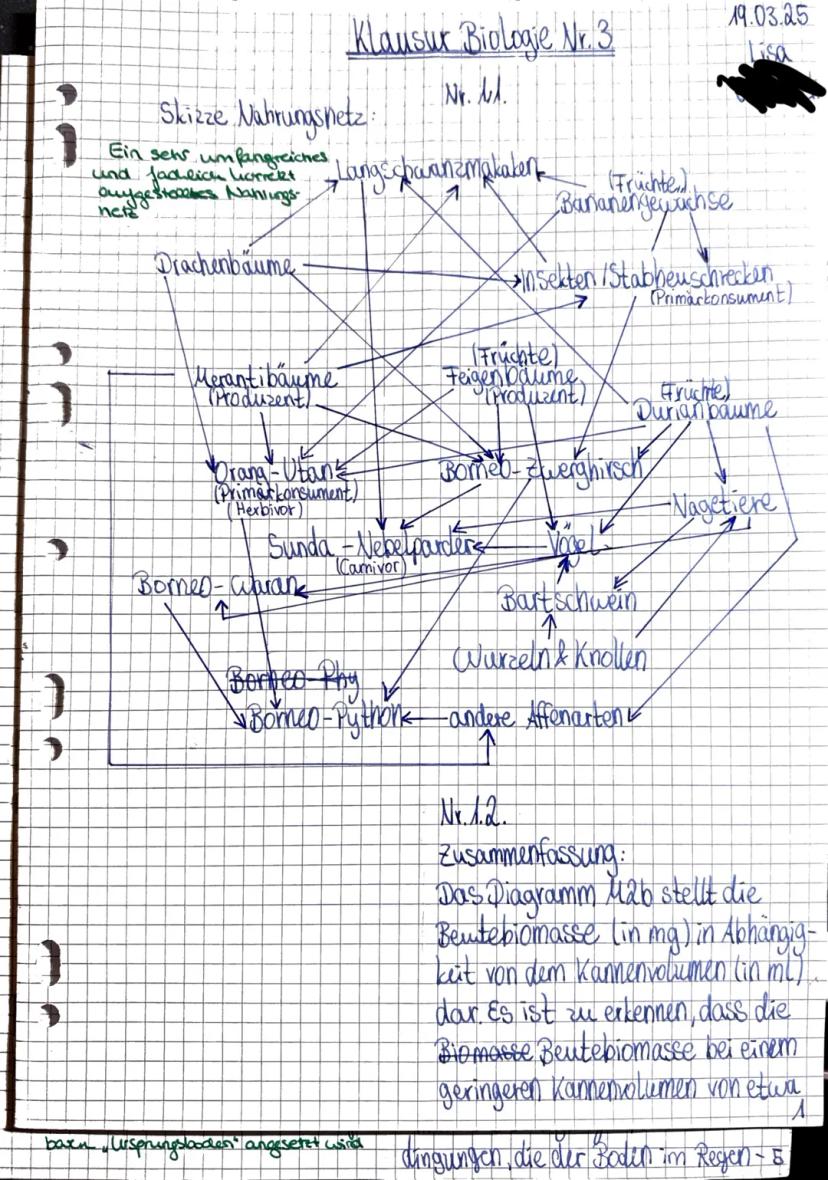 Klausur Biologie Nr. 3
19.03.25
Lisa
Nr. 1.1.
Skizze Nahrungsnetz:
Ein sehr umfangreiches
und fachlich korrekt
aufgestelltes Nahrungs-
netz
Langschwanzmakaken
(Früchte)
Bananengewächse
Drachenbäume
Insekten / Stabheuschrecken
(Primärkonsument)
Merantibäume
(Produzent)
(Früchte)
Feigenbäume
(Produzent)
(Früchte)
Durianbäume
Orang-Utan
(Primärkonsument)
(Herbivor)
Borneo-Zwerghirsch
Nagetiere
Sunda-Nebelparder
(Carnivor)
Vögel
Borneo-Waran
Bartschwein
Wurzeln & Knollen
Borneo-Phy
Borneo-Python
andere Affenarten
Nr. 1.2.
Zusammenfassung:
Das Diagramm M2b stellt die
Beutebiomasse (in mg) in Abhängig-
keit von dem Kannenvolumen (in ml)
dar. Es ist zu erkennen, dass die
Biomasse Beutebiomasse bei einem
geringeren Kannenvolumen von etwa
1
"Ursprungsboden" angesetzt wird
dingungen, die der Boden im Regen- 5